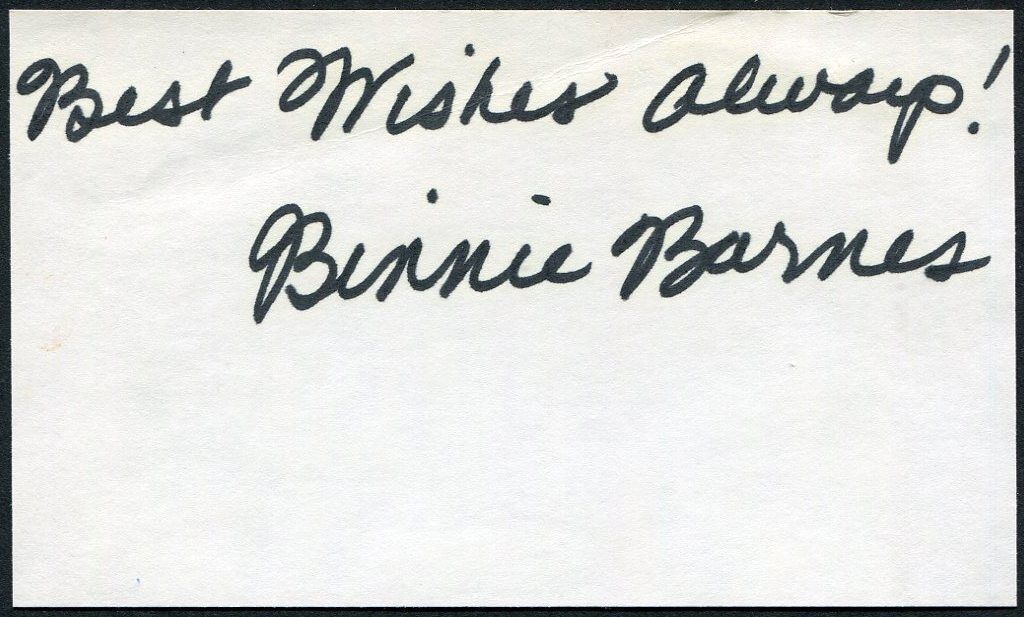 Best Wishes always!
Binnie Barnes